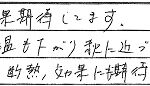 果期待してます。
温も下がり秋に近づ
的熱,効果にも期待